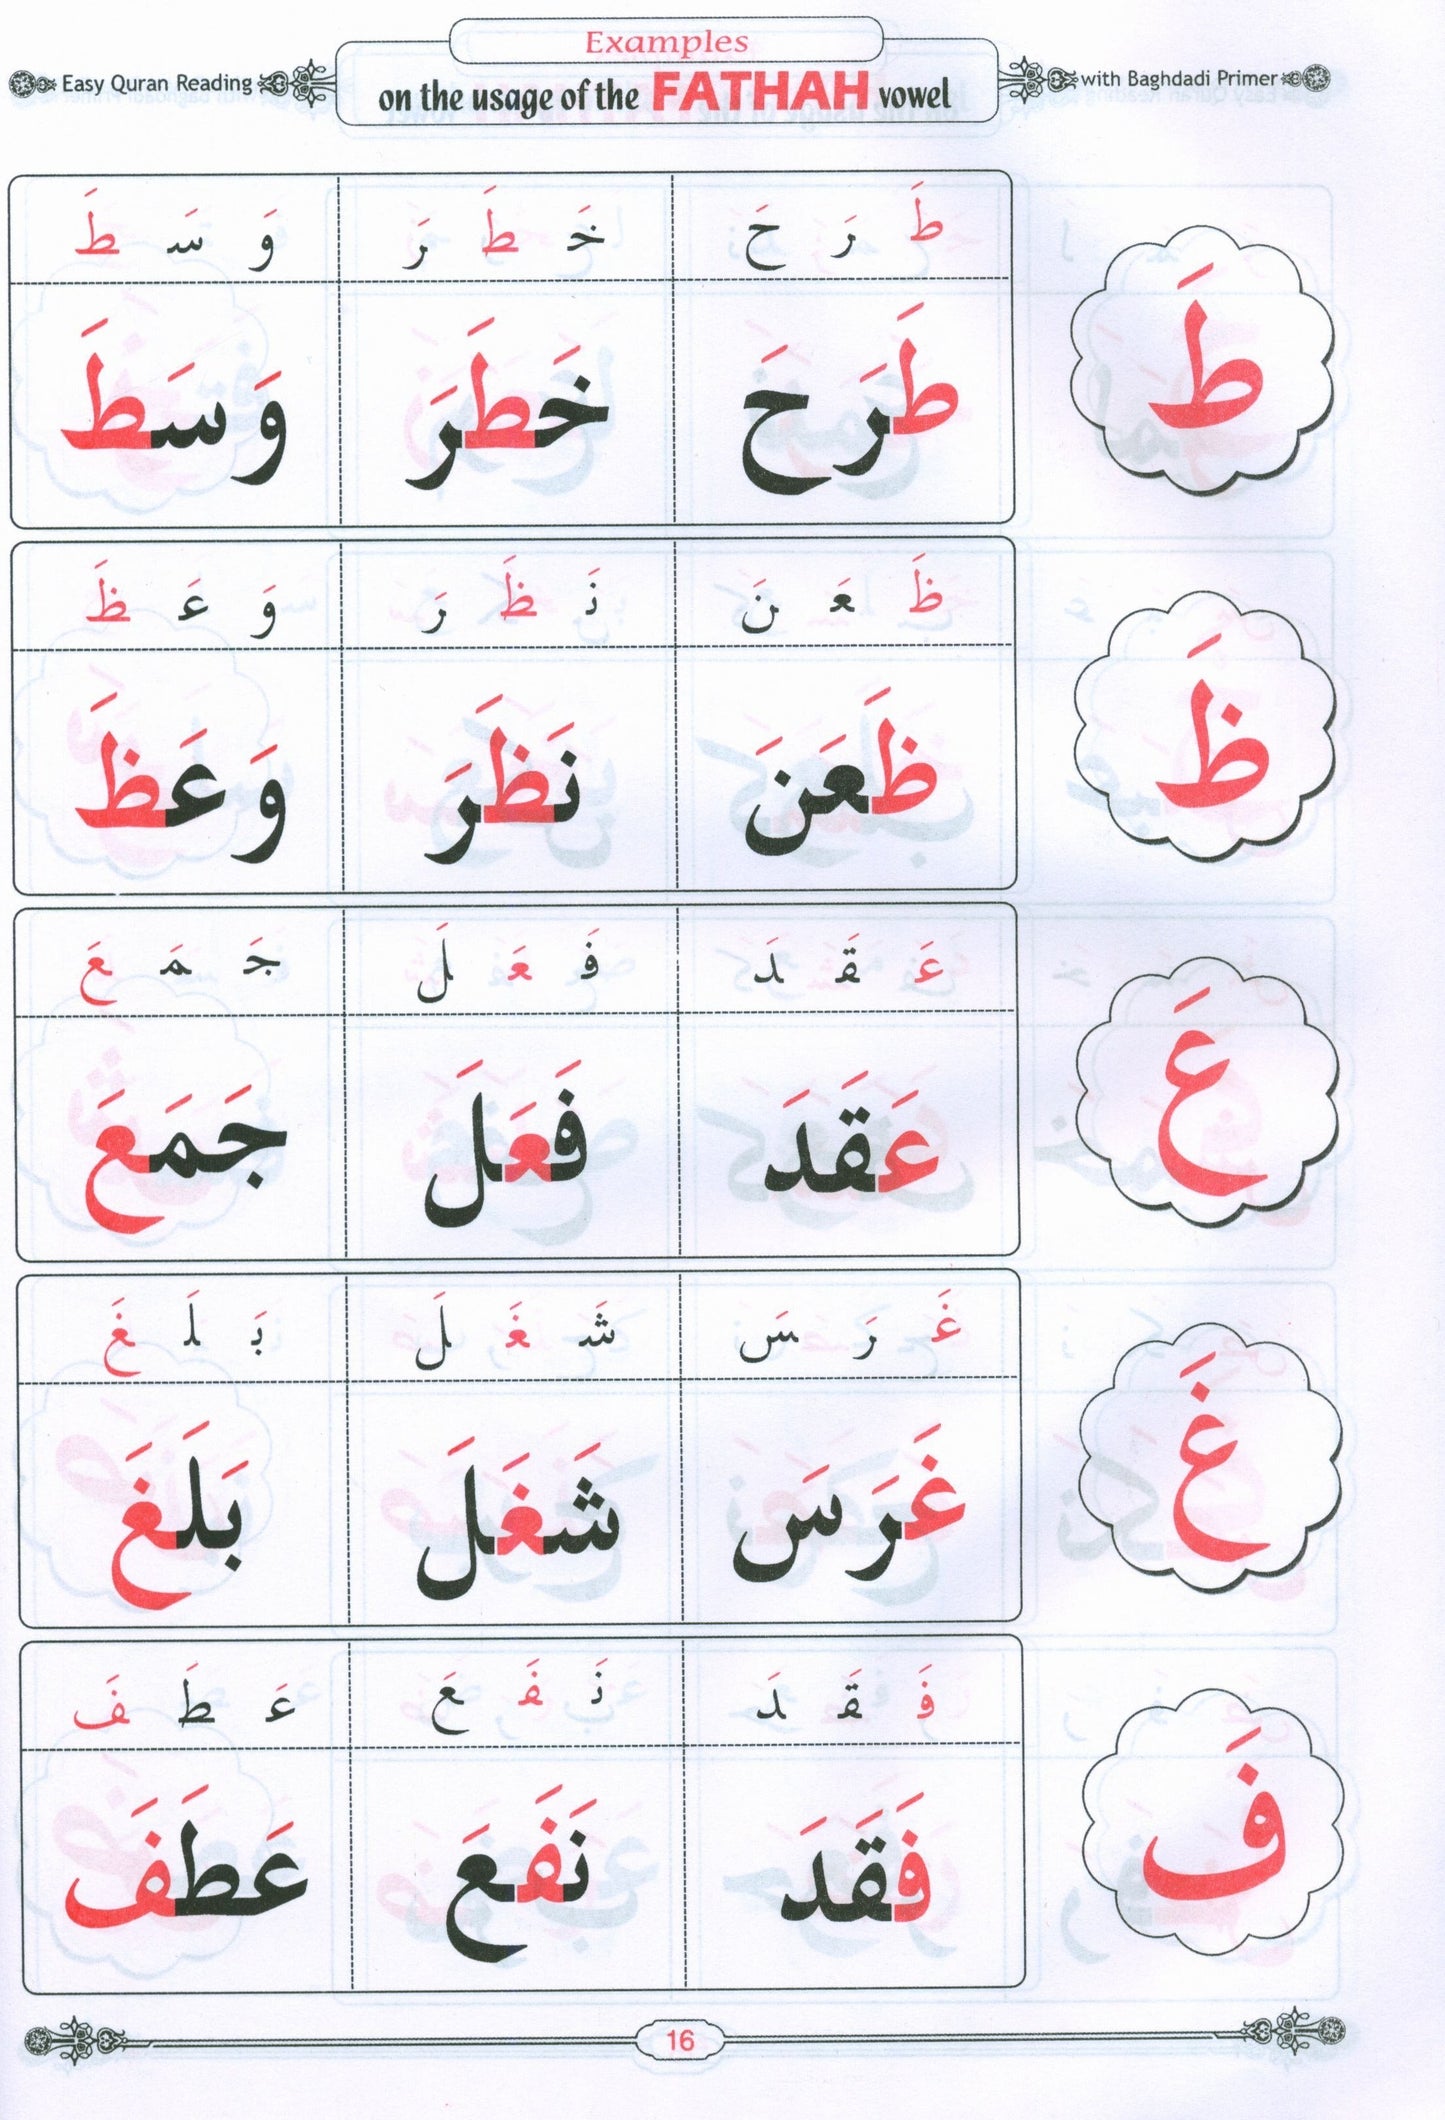 Examples
Easy Quran Reading on the usage of the FATHAH vowel with Baghdadi Primer
طَ رَ حَ خَ طَ رَ وَ سَ طَ
طَ طَرَحَ خَطَرَ وَسَطَ
ظَ عَ نَ نَ ظَ رَ وَ عَ ظَ
ظَ ظَعَنَ نَظَرَ وَعَظَ
عَ قَ دَ فَ عَ لَ جَ مَ عَ
عَ عَقَدَ فَعَلَ جَمَعَ
غَ رَ سَ شَ غَ لَ بَ لَ غَ
غَ غَرَسَ شَغَلَ بَلَغَ
فَ قَ دَ نَ فَ عَ عَ طَ فَ
فَ فَقَدَ نَفَعَ عَطَفَ
16